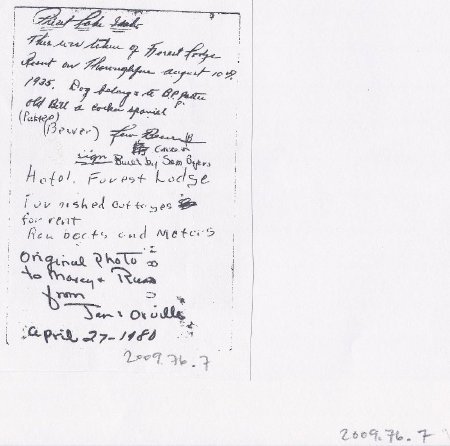 Priest Lake Idaho
This was taken of Forest Lodge
Resort on Thoroughfare august 10th
1935. Dog belongs to
old Bill a cocker spaniel
(Beaver)
sign Built by Sam Byers
Hotel. Forest Lodge
Furnished cottages
for rent
Row boats and Motors
Original Photo
to Marcy + Russ
from
Jan & Orville
April 27-1980
2009.76.7
2009.76.7